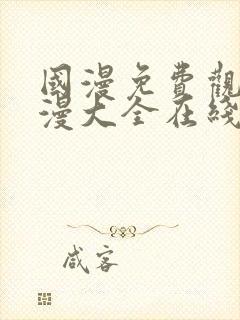 國漫免費觀
漫大全在綫
咸客